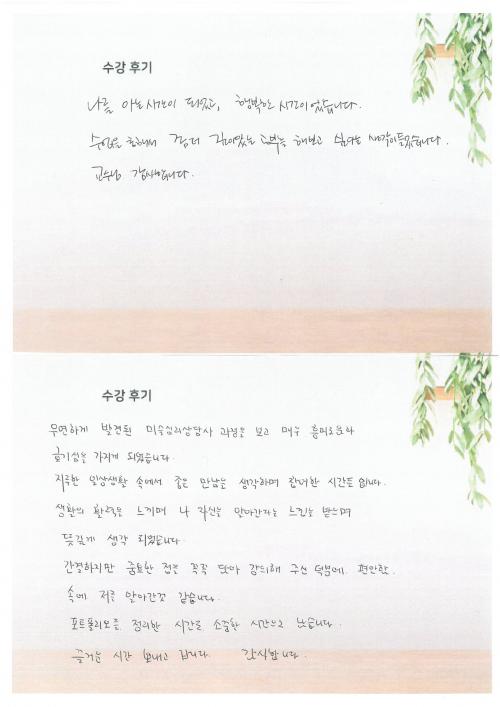 수강 후기
나를 아는 시간이 되었고, 행복한 시간이었습니다.
수업을 통해서 좀더 깊이있는 공부를 해보고 싶다는 생각이 들었습니다.
교수님 감사합니다.
수강 후기
우연하게 발견된 미술심리상담사 과정을 보고 매우 흥미로움과
호기심을 가지게 되었습니다.
지루한 일상생활 속에서 좋은 만남을 생각하며 함께한 시간들 입니다.
생활의 활력을 느끼며 나 자신을 알아간다는 느낌을 받으며
뜻깊게 생각 되었습니다.
간결하지만 중요한 점을 꼭꼭 담아 강의해 주신 덕분에 편안함
속에 저를 알아간것 같습니다.
포트폴리오를 정리한 시간도 소중한 시간으로 남습니다.
즐거운 시간 보내고 갑니다. 감사합니다.